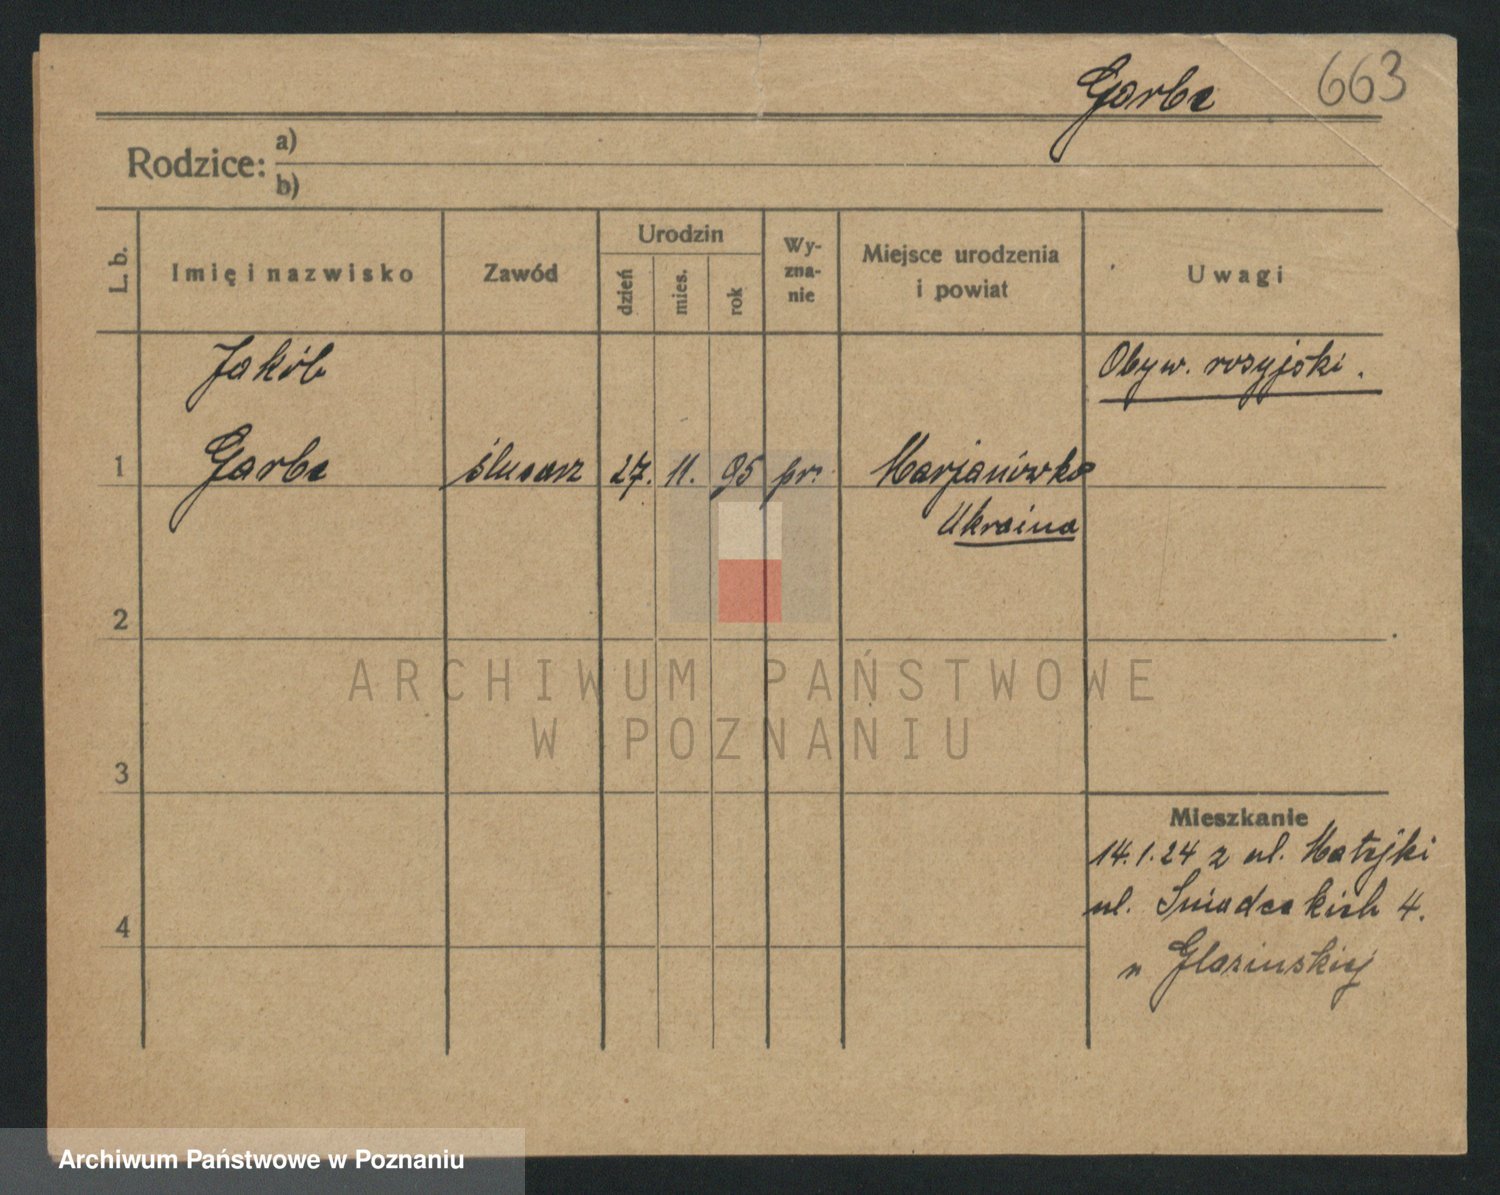 Garbe 663
Rodzice: a)
b)
L. b. Imię i nazwisko Zawód Urodzin dzień mies. rok Wy-zna-nie Miejsce urodzenia i powiat Uwagi
Jakób Obyw. rosyjski.
1 Garbe ślusarz 27. 11. 95 pr. Marjanówka
Ukraina
2
ARCHIWUM PAŃSTWOWE
W POZNANIU
3
Mieszkanie
14.1.24 z ul. Matejki
4 ul. Śniadeckich 4.
Archiwum Państwowe w Poznaniu